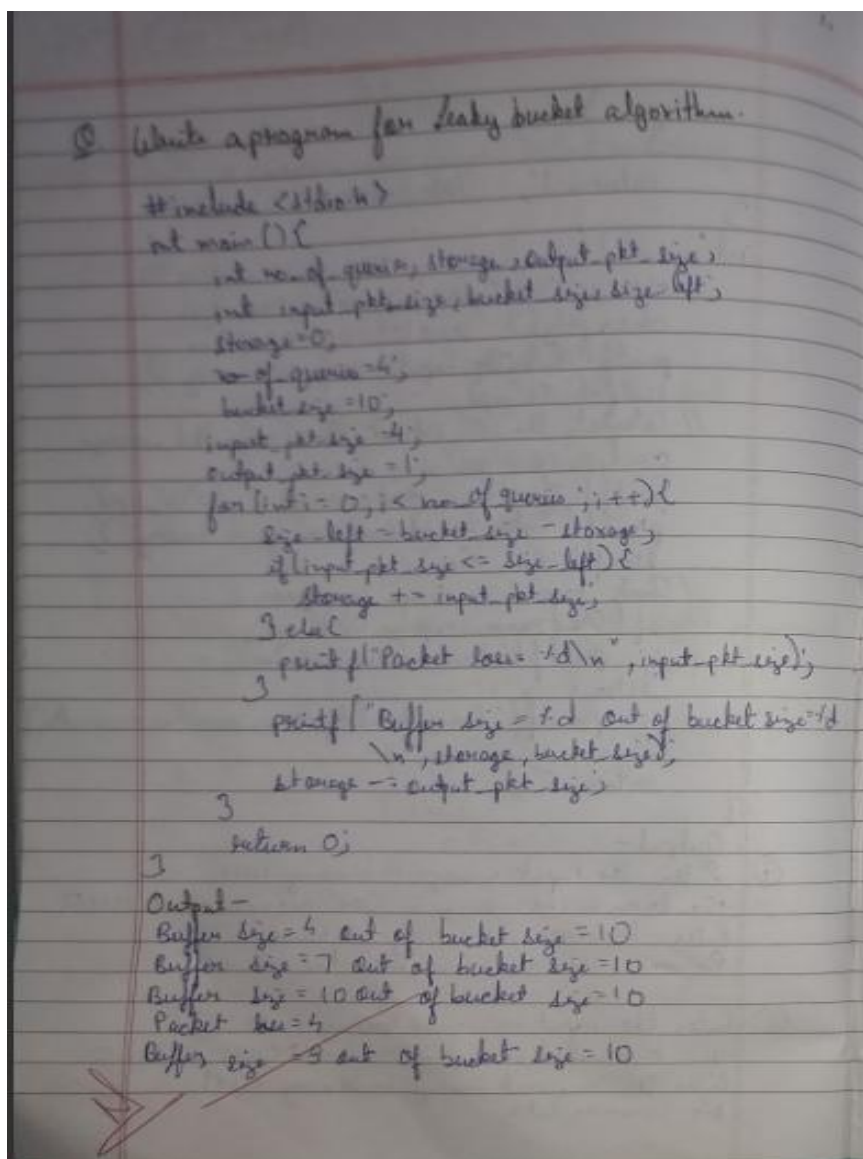 Q Write a program for leaky bucket algorithm.
#include <stdio.h>
int main () {
int no_of_queries, storage, output_pkt_size;
int input_pkt_size, bucket_size, size_left;
storage=0;
no_of_queries=4;
bucket_size=10;
input_pkt_size=4;
output_pkt_size=1;
for(int i=0; i< no_of_queries; i++){
size_left = bucket_size - storage;
if(input_pkt_size <= size_left){
storage += input_pkt_size;
} else{
printf("Packet loss= %d\n", input_pkt_size);
}
printf("Buffer size = %d out of bucket size=%d
\n", storage, bucket_size);
storage -= output_pkt_size;
}
return 0;
}
Output -
Buffer size = 4 out of bucket size = 10
Buffer size = 7 out of bucket size = 10
Buffer size = 10 out of bucket size = 10
Packet loss = 4
Buffer size = 9 out of bucket size = 10